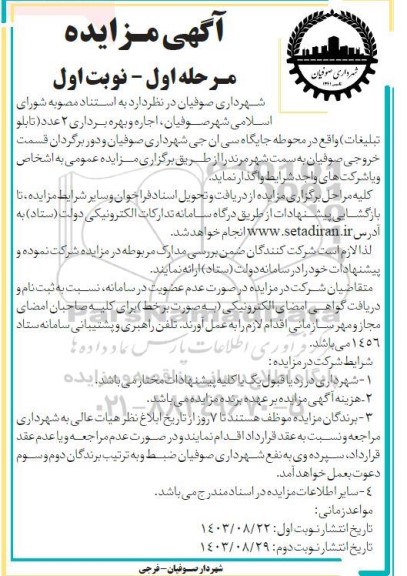 آگهی مزایده
مرحله اول - نوبت اول
شهرداری صوفیان
شهرداری صوفیان در نظر دارد به استناد مصوبه شورای
اسلامی شهر صوفیان، اجاره و بهره برداری ۲ عدد (تابلو
تبلیغات) واقع در محوطه جایگاه سی ان جی شهرداری صوفیان و دور برگردان قسمت
خروجی صوفیان به سمت شهر مرند را از طریق برگزاری مزایده عمومی به اشخاص
و یا شرکت های واجد شرایط واگذار نماید.
کلیه مراحل برگزاری مزایده از دریافت و تحویل اسناد فراخوان و سایر شرایط مزایده، تا
بازگشایی پیشنهادات از طریق درگاه سامانه تدارکات الکترونیکی دولت (ستاد) به
آدرس www.setadiran.ir انجام خواهد شد.
لذا لازم است شرکت کنندگان ضمن بررسی مدارک مربوطه در مزایده شرکت نموده و
پیشنهادات خود را در سامانه دولت (ستاد) ارائه نمایند.
متقاضیان شرکت در مزایده در صورت عدم عضویت در سامانه، نسبت به ثبت نام و
دریافت گواهی امضای الکترونیکی (به صورت برخط) برای کلیه صاحبان امضای
مجاز و مهر سازمانی اقدام لازم را به عمل آورند. تلفن راهبری و پشتیبانی سامانه ستاد
۱۴۵۶ می باشد.
شرایط شرکت در مزایده:
۱- شهرداری در رد یا قبول یک یا کلیه پیشنهادات مختار می باشد.
۲- هزینه آگهی مزایده بر عهده برنده مزایده می باشد.
۳- برندگان مزایده موظف هستند تا ۷ روز از تاریخ ابلاغ نظر هیات عالی به شهرداری
مراجعه و نسبت به عقد قرارداد اقدام نمایند و در صورت عدم مراجعه و یا عدم عقد
قرارداد، سپرده وی به نفع شهرداری صوفیان ضبط و به ترتیب برندگان دوم و سوم
دعوت بعمل خواهد آمد.
۴- سایر اطلاعات مزایده در اسناد مندرج می باشد.
مواعد زمانی:
تاریخ انتشار نوبت اول: ۱۴۰۳/۰۸/۲۲
تاریخ انتشار نوبت دوم: ۱۴۰۳/۰۸/۲۹
شهردار صوفیان - فرجی